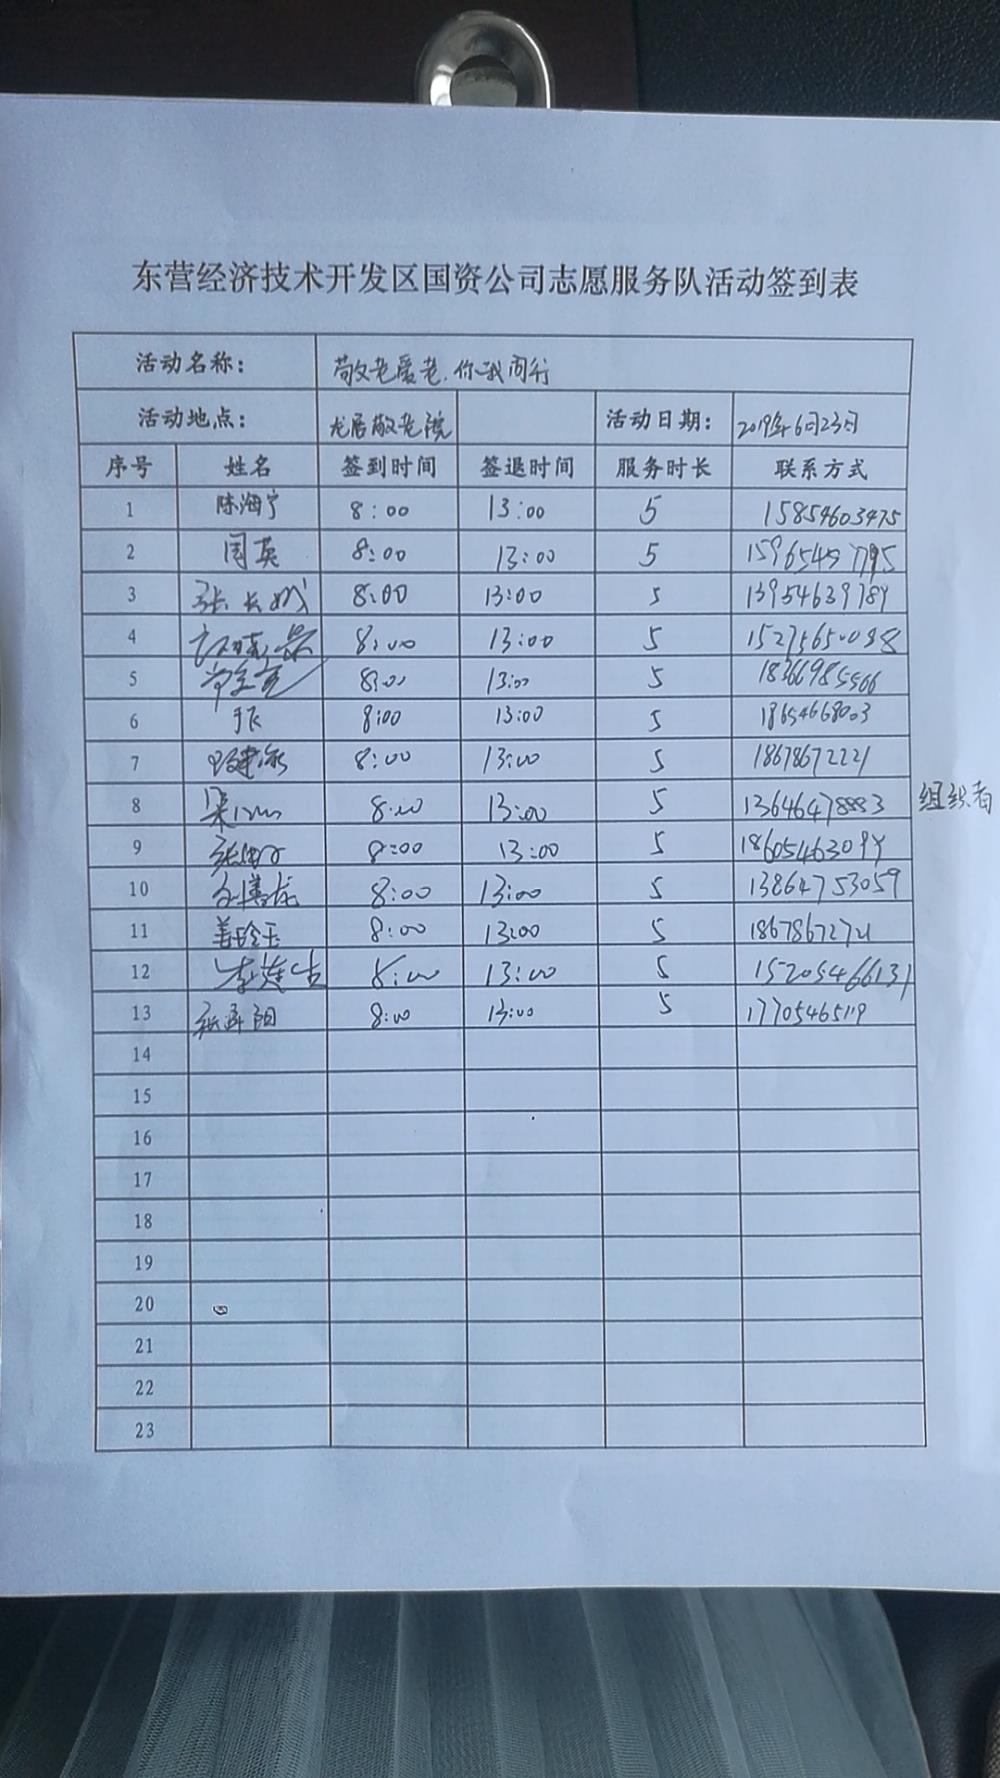 东营经济技术开发区国资公司志愿服务队活动签到表
活动名称： 敬老爱老.你我同行
活动地点： 龙居敬老院 活动日期： 2019年6月23日
序号 姓名 签到时间 签退时间 服务时长 联系方式
1 陈海宁 8:00 13:00 5 15854603475
2 周英 8:00 13:00 5
3 张长城 8:00 13:00 5 13954639789
4 8:00 13:00 5 15275650098
5 8:00 13:00 5 18366985566
6 于飞 8:00 13:00 5 18654668003
7 8:00 13:00 5 18678672221
8 8:00 13:00 5 13646478883 组织者
9 8:00 13:00 5
10 8:00 13:00 5 13864753059
11 姜玲玉 8:00 13:00 5 18678672721
12 李莲生 8:00 13:00 5 15205466131
13 8:00 13:00 5 17705465119
14
15
16
17
18
19
20
21
22
23